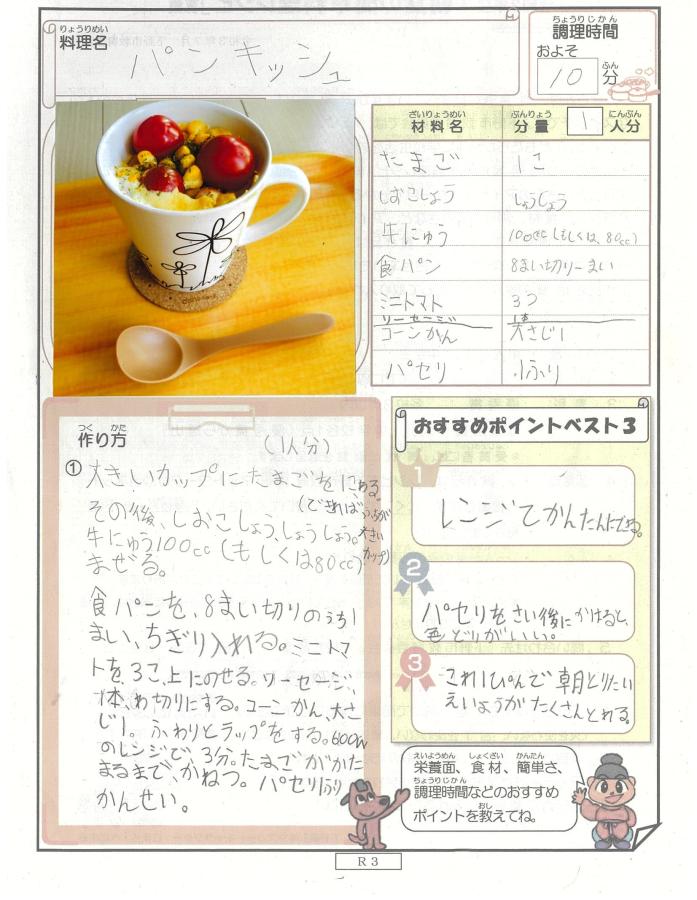 りょうりめい
料理名
パンキッシュ
ちょうりじかん
調理時間
およそ
10 分
ふん
ざいりょうめい
材料名
ぶんりょう
分量
1 人分
にんぶん
たまご 1こ
しおこしょう しょうしょう
牛にゅう 100cc(もしくは、80cc)
食パン 8まい切り一まい
ミニトマト 3つ
ソーセージ 1本
コーンかん 大さじ1
パセリ 1ふり
つく かた
作り方
(1人分)
① 大きいカップにたまごをにわる。
(できればうちが大きいカップ)
その後、しおこしょう、しょうしょう。
牛にゅう100cc(もしくは80cc)
まぜる。
食パンを、8まい切りのうち1
まい、ちぎり入れる。ミニトマ
トを、3こ、上にのせる。ソーセージ、
1本、わ切りにする。コーンかん、大さ
じ1。ふわりとラップをする。600w
のレンジで、3分。たまごがかた
まるまで、かねつ。パセリ1ふり
かんせい。
おすすめポイントベスト3
1
レンジでかんたんにできる。
2
パセリをさい後にかけると、
色どりがいい。
3
これ1ぴんで朝とりたい
えいようがたくさんとれる。
えいようめん しょくざい かんたん
栄養面、食材、簡単さ、
ちょうりじかん
調理時間などのおすすめ
おし
ポイントを教えてね。
R3